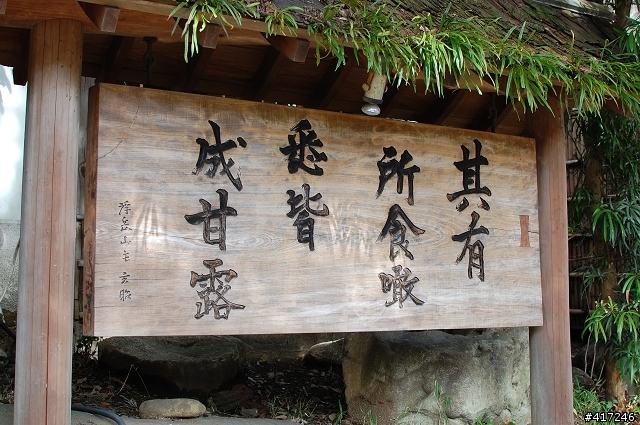 其有
所食噉
悉皆
成甘露
浮岳山主 玄
#417246